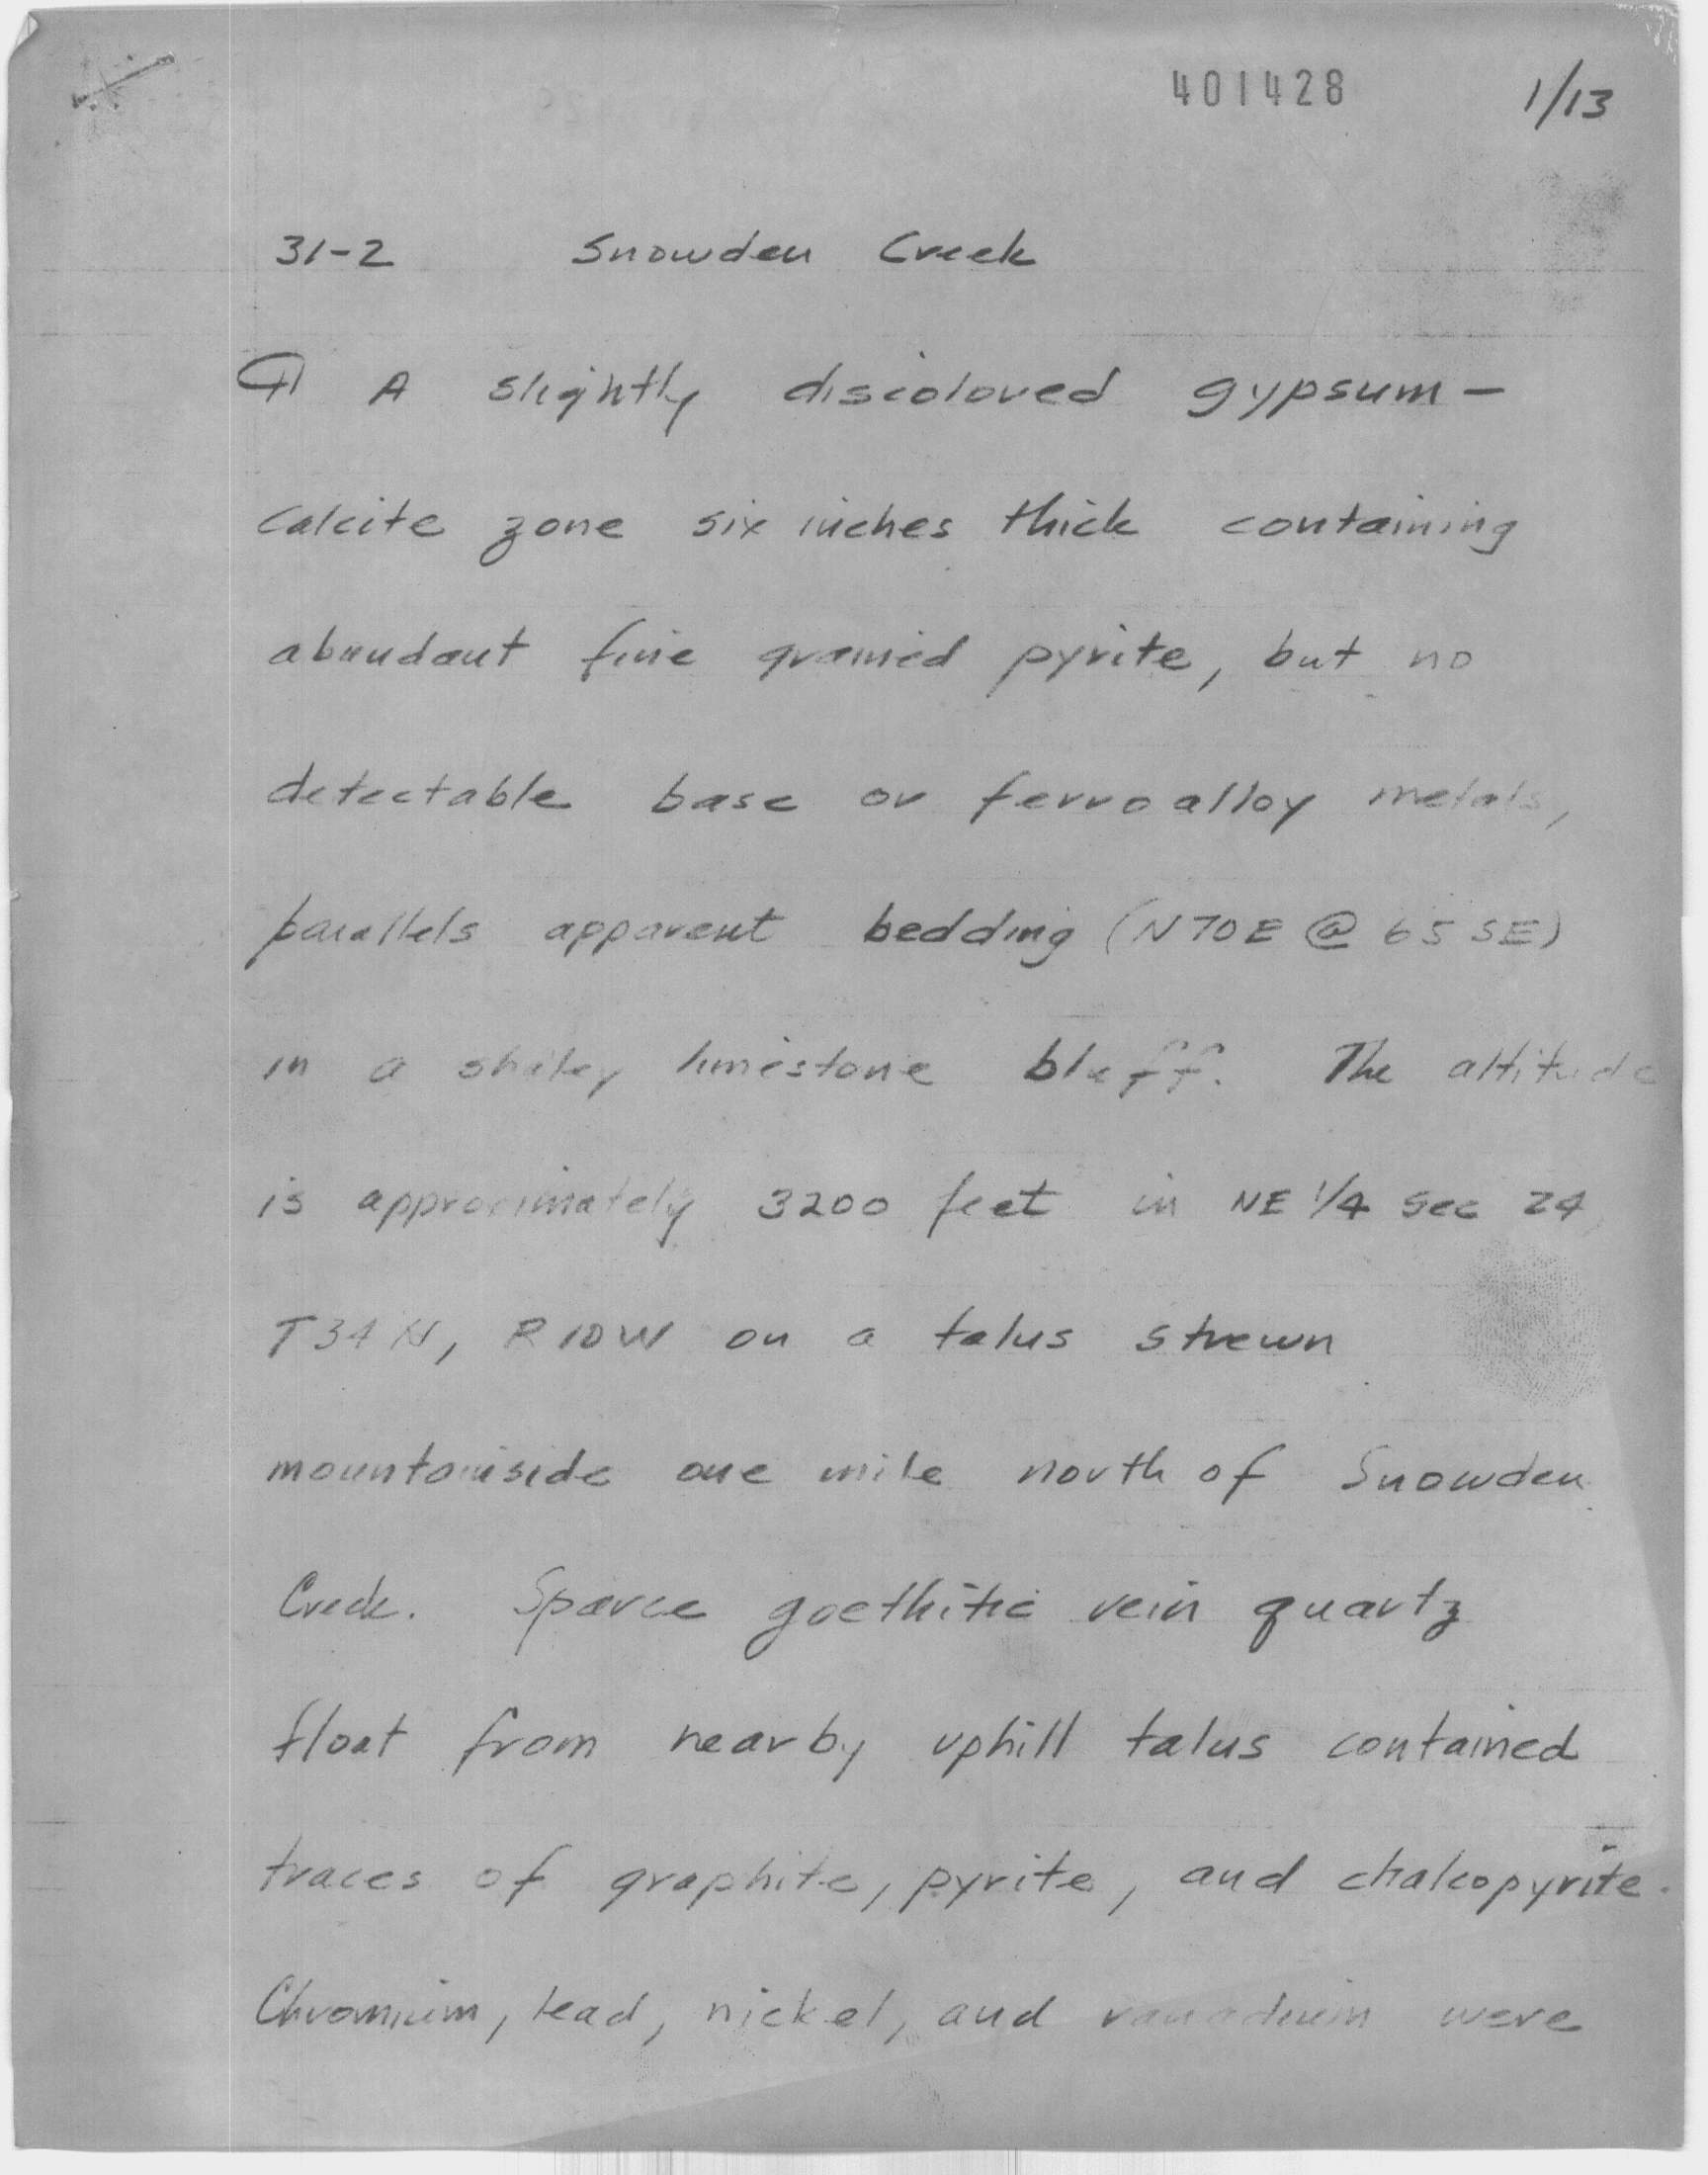 401428 1/13
31-2 Snowden Creek
¶ A slightly discolored gypsum-
calcite zone six inches thick containing
abundant fine grained pyrite, but no
detectable base or ferroalloy metals,
parallels apparent bedding (N70E @ 65 SE)
in a shaley limestone bluff. The altitude
is approximately 3200 feet in NE 1/4 Sec 24,
T34N, R10W on a talus strewn
mountainside one mile north of Snowden
Creek. Sparce goethitic vein quartz
float from nearby uphill talus contained
traces of graphite, pyrite, and chalcopyrite.
Chromium, lead, nickel, and vanadium were